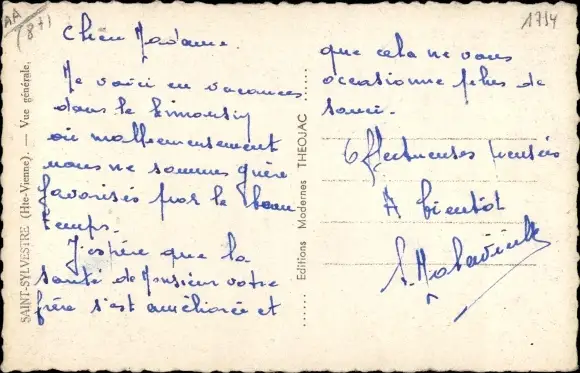 AA
871
1714
Chère Madame.
Me voici en vacances
dans le Limousin
où malheureusement
nous ne sommes guère
favorisés par le beau
temps.
J'espère que la
santé de Monsieur votre
frère s'est améliorée et
SAINT-SYLVESTRE (Hte-Vienne). — Vue générale.
...... Editions Modernes THEOJAC ......
que cela ne vous
occasionne plus de
souci.
Affectueuses pensées
A bientôt